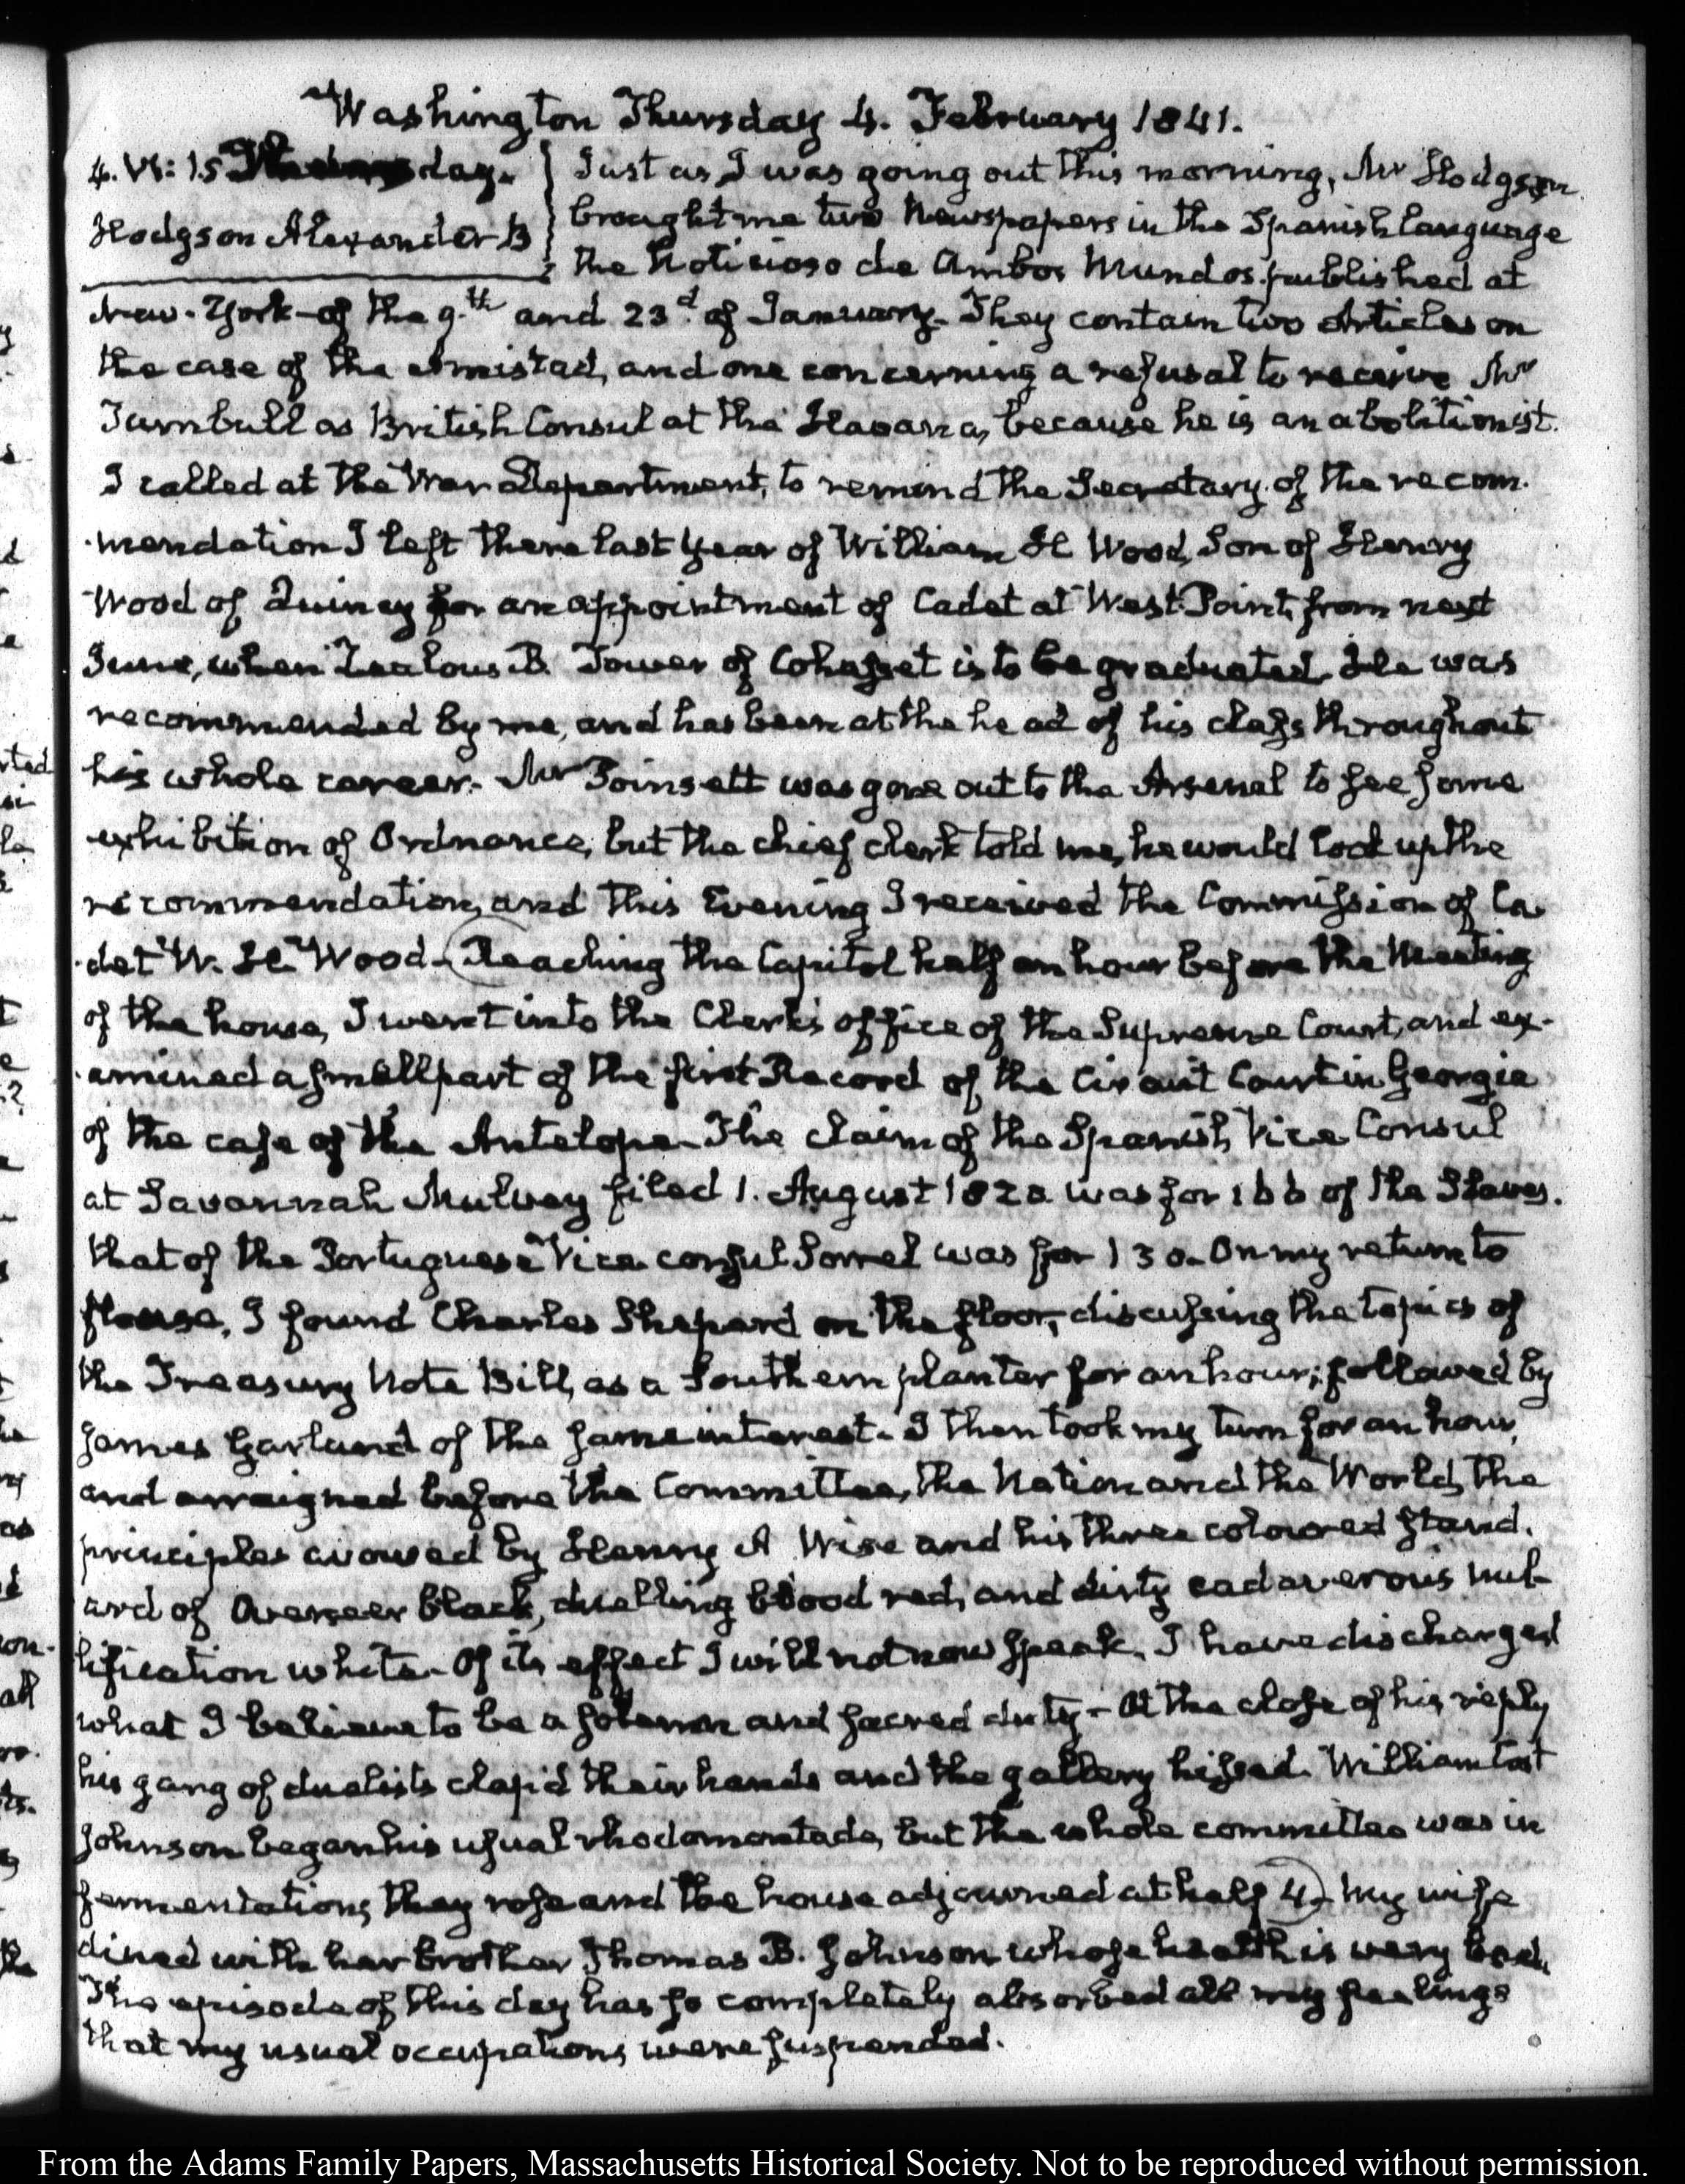 Washington Thursday 4. February 1841.
4. VI: 15 Thursday.
Hodgson Alexander B
Just as I was going out this morning, Mr Hodgson
brought me two Newspapers in the Spanish language
the Noticioso de Ambos Mundos published at
New-York of the 9.th and 23d. of January. They contain two Articles on
the case of the Amistad, and one concerning a refusal to receive Mr
Turnbull as British Consul at the Havana, because he is an abolitionist.
I called at the War Department, to remind the Secretary of the recom-
mendation I left there last year of William H Wood, Son of Henry
Wood of Quincy for an appointment of Cadet at West-Point, from next
June, when Zealous B Tower of Cohasset is to be graduated. He was
recommended by me, and has been at the head of his class throughout
his whole career. Mr Poinsett was gone out to the Arsenal to see some
exhibition of Ordnance, but the chief clerk told me, he would look up the
recommendation, and this Evening I received the Commission of Ca-
det W. H. Wood. Reaching the Capitol half an hour before the Meeting
of the house, I went into the Clerk's office of the Supreme Court, and ex-
amined a small part of the first Record of the Circuit Court in Georgia
of the case of the Antelope. The claim of the Spanish Vice Consul
at Savannah Mulvey filed 1. August 1820 was for 166 of the Slaves.
that of the Portuguese Vice consul Sorrel was for 130. On my return to
House, I found Charles Shepard on the floor, discussing the topics of
the Treasury Note Bill, as a Southern planter for an hour; followed by
James Garland of the same interest. I then took my turn for an hour,
and arraigned before the Committee, the Nation and the World, the
principles avowed by Henry A Wise and his three coloured stand-
ard of Overseer black, duelling blood red, and dirty cadaverous nul-
lification white. Of its effect I will not now speak. I have discharged
what I believe to be a solemn and sacred duty. At the close of his reply
his gang of duelists clap'd their hands and the gallery hissed. William Cost
Johnson began his usual rhodomontade, but the whole committee was in
fermentation, they rose and the house adjourned at half 4. My wife
dined with her brother Thomas B. Johnson whose health is very bad.
The episode of this day has so completely absorbed all my feelings
that my usual occupations were suspended.
From the Adams Family Papers, Massachusetts Historical Society. Not to be reproduced without permission.